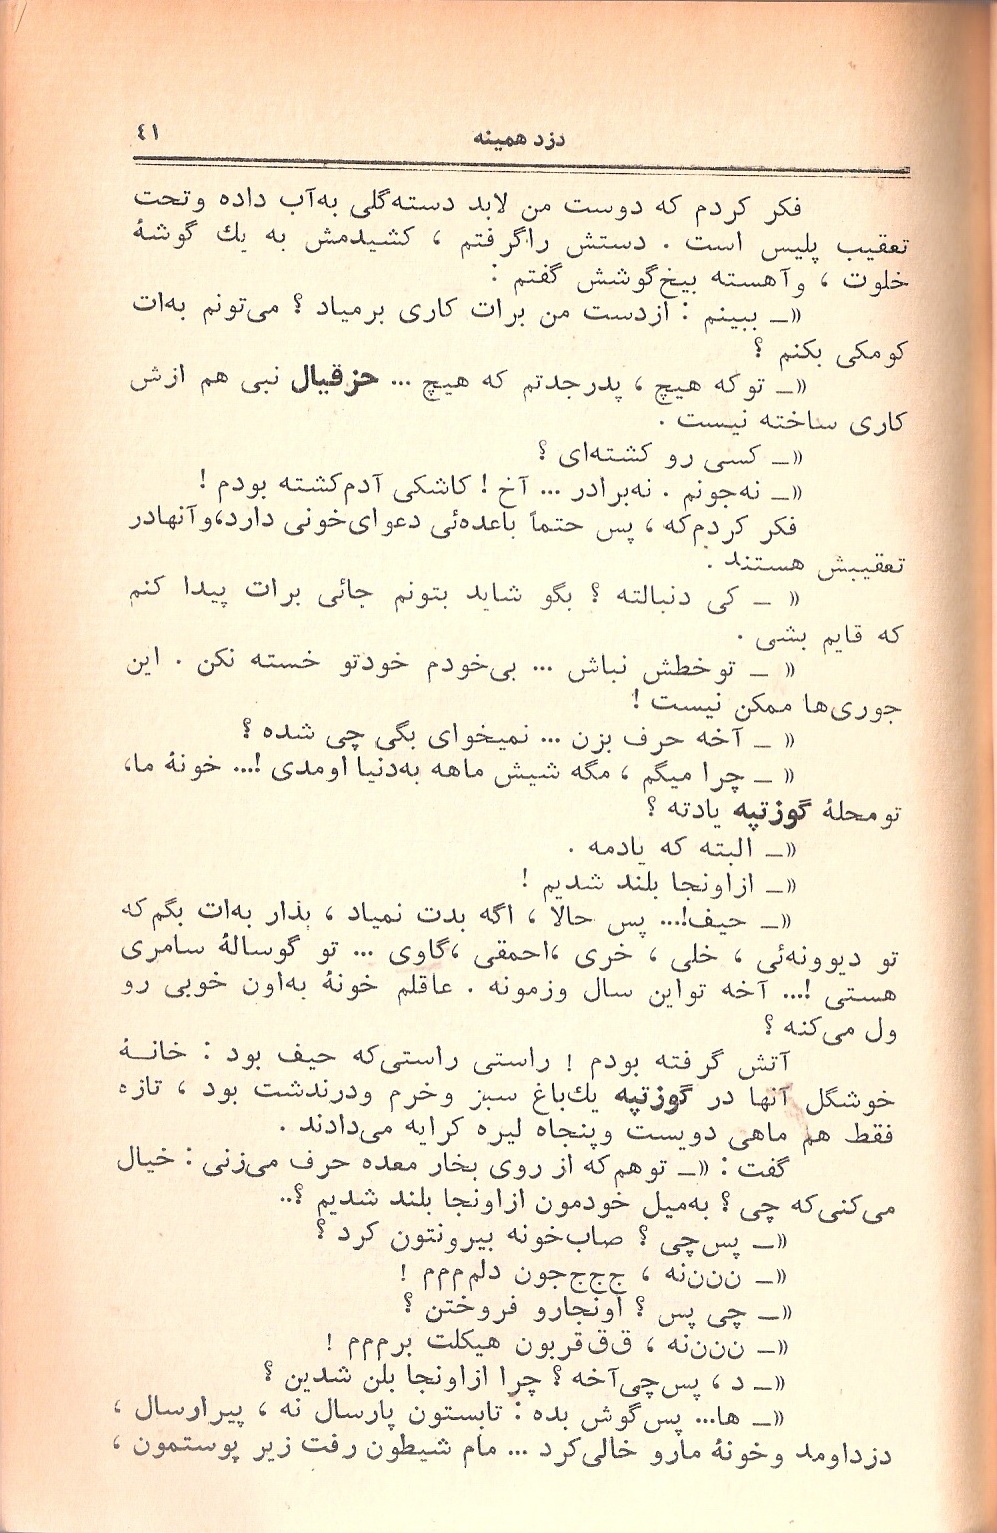 دزد همینه
٤١
فکر کردم که دوست من لابد دسته‌گلی به‌آب داده وتحت
تعقیب پلیس است . دستش راگرفتم ، کشیدمش به یك گوشهٔ
خلوت ، وآهسته بیخ‌گوشش گفتم :
«ـ ببینم : ازدست من برات کاری برمیاد ؟ می‌تونم به‌ات
کومکی بکنم ؟
«ـ توکه هیچ ، پدرجدتم که هیچ ... حزقیال نبی هم ازش
کاری ساخته نیست .
«ـ کسی رو کشته‌ای ؟
«ـ نه‌جونم . نه‌برادر ... آخ ! کاشکی آدم‌کشته بودم !
فکر کردم‌که ، پس حتماً باعده‌ئی دعوای‌خونی دارد،وآنهادر
تعقیبش هستند .
« ـ کی دنبالته ؟ بگو شاید بتونم جائی برات پیدا کنم
که قایم بشی .
« ـ توخطش نباش ... بی‌خودم خودتو خسته نکن . این
جوری‌ها ممکن نیست !
« ـ آخه حرف بزن ... نمیخوای بگی چی شده ؟
« ـ چرا میگم ، مگه شیش ماهه به‌دنیا اومدی !... خونهٔ ما،
تومحلهٔ گوزتپه یادته ؟
«ـ البته که یادمه .
«ـ ازاونجا بلند شدیم !
«ـ حیف!... پس حالا ، اگه بدت نمیاد ، بذار به‌ات بگم‌که
تو دیوونه‌ئی ، خلی ، خری ،احمقی ،گاوی ... تو گوسالهٔ سامری
هستی !... آخه تواین سال وزمونه . عاقلم خونهٔ به‌اون خوبی رو
ول می‌کنه ؟
آتش گرفته بودم ! راستی راستی‌که حیف بود : خانـهٔ
خوشگل آنها در گوزتپه یك‌باغ سبز وخرم ودرندشت بود ، تازه
فقط هم ماهی دویست وپنجاه لیره کرایه می‌دادند .
گفت : «ـ توهم‌که از روی بخار معده حرف می‌زنی : خیال
می‌کنی‌که چی ؟ به‌میل خودمون ازاونجا بلند شدیم ؟..
«ـ پس‌چی ؟ صاب‌خونه بیرونتون کرد ؟
«ـ ن‌ن‌ن‌نه ، ج‌ج‌ج‌جون دلم‌م‌م‌م !
«ـ چی پس ؟ اونجارو فروختن ؟
«ـ ن‌ن‌ن‌نه ، ق‌ق‌قربون هیکلت برم‌م‌م !
«ـ د ، پس‌چی‌آخه ؟ چرا ازاونجا بلن شدین ؟
«ـ ها... پس‌گوش بده : تابستون پارسال نه ، پیرارسال ،
دزداومد وخونهٔ مارو خالی‌کرد ... مام شیطون رفت زیر پوستمون ،